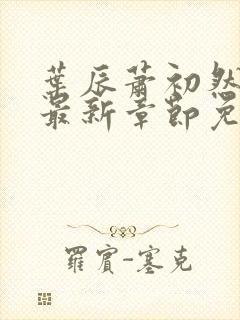 葉辰蕭初然
最新章節免
羅賓-塞克